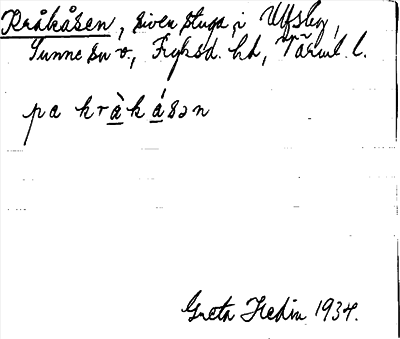 Kråkåsen, även stuga, i Ulfsby,
Sunne sn o., Fryksd. hd, Värml. l.
pa kràkásən
Greta Hedin 1934.